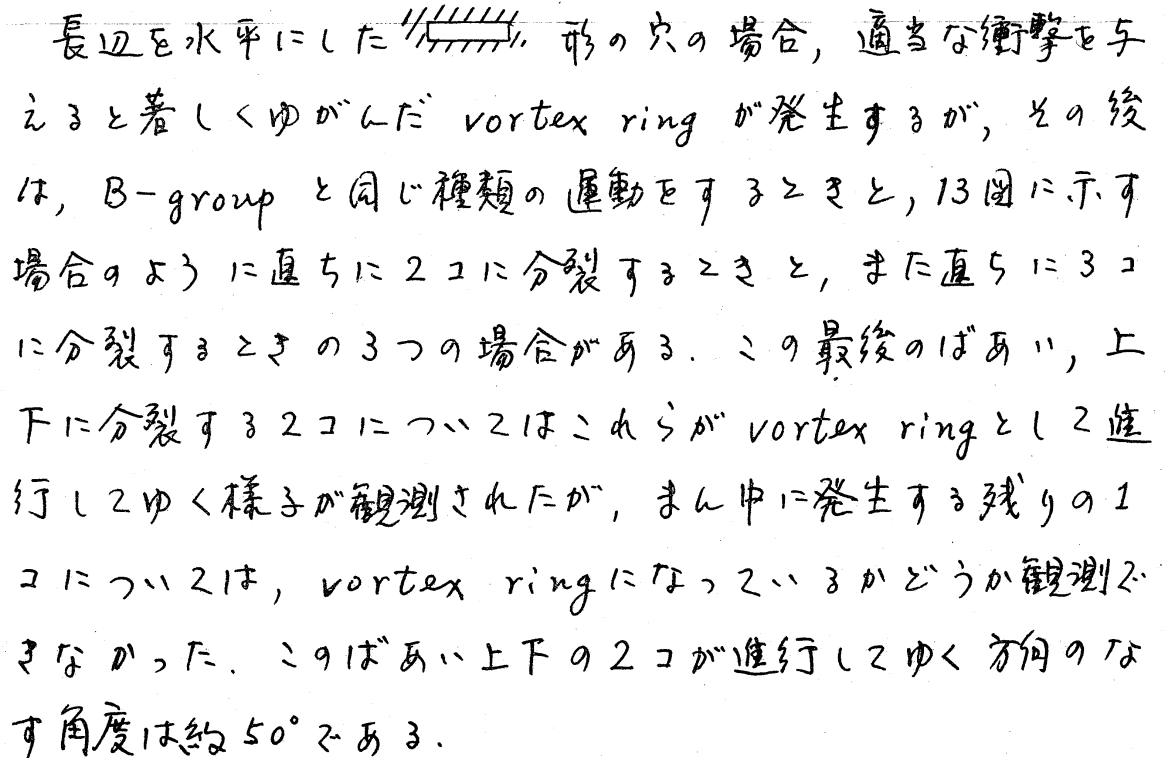 長辺を水平にした 形の穴の場合,適当な衝撃を与
えると著しくゆがんだ vortex ring が発生するが,その後
は,B-group と同じ種類の運動をするときと,13図に示す
場合のように直ちに2コに分裂するときと,また直ちに3コ
に分裂するときの3つの場合がある.この最後のばあい,上
下に分裂する2コについてはこれらが vortex ring として進
行してゆく様子が観測されたが,まん中に発生する残りの1
コについては,vortex ring になっているかどうか観測で
きなかった.このばあい上下の2コが進行してゆく方向のな
す角度は約50°である.